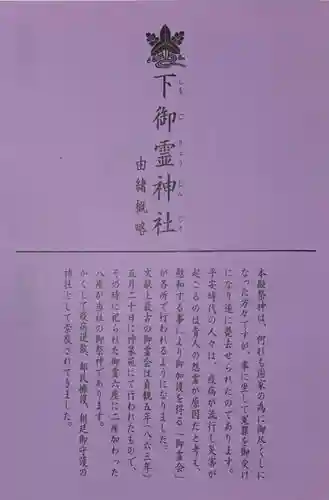 下御霊神社
しもごりょうじんじゃ
由緒概略
本殿祭神は、何れも国家の為に御尽くしに
なった方々ですが、事に坐して冤罪を御受け
になり遂に薨去せられたのであります。
平安時代の人々は、疫病が流行し災害が
起こるのは貴人の怨霊が原因だと考え、
慰和する事により御加護を得る「御霊会」
が各所で行われるようになりました。
文献上最古の御霊会は貞観五年(八六三年)
五月二十日に神泉苑にて行われたもので、
その時に祀られた御霊六座に二座加わった
八座が当社の御祭神であります。
かくして疫病退散、都民擁護、朝廷御守護の
神社として崇敬されてきました。